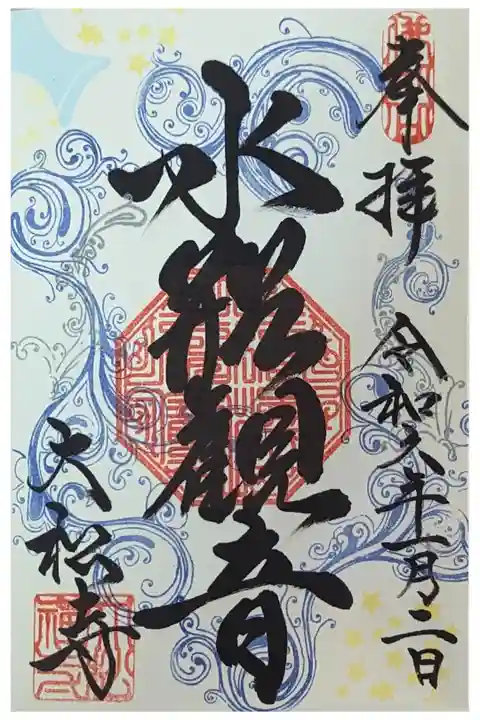 奉拝
令和六年一月二日
水瓶觀音
大松寺